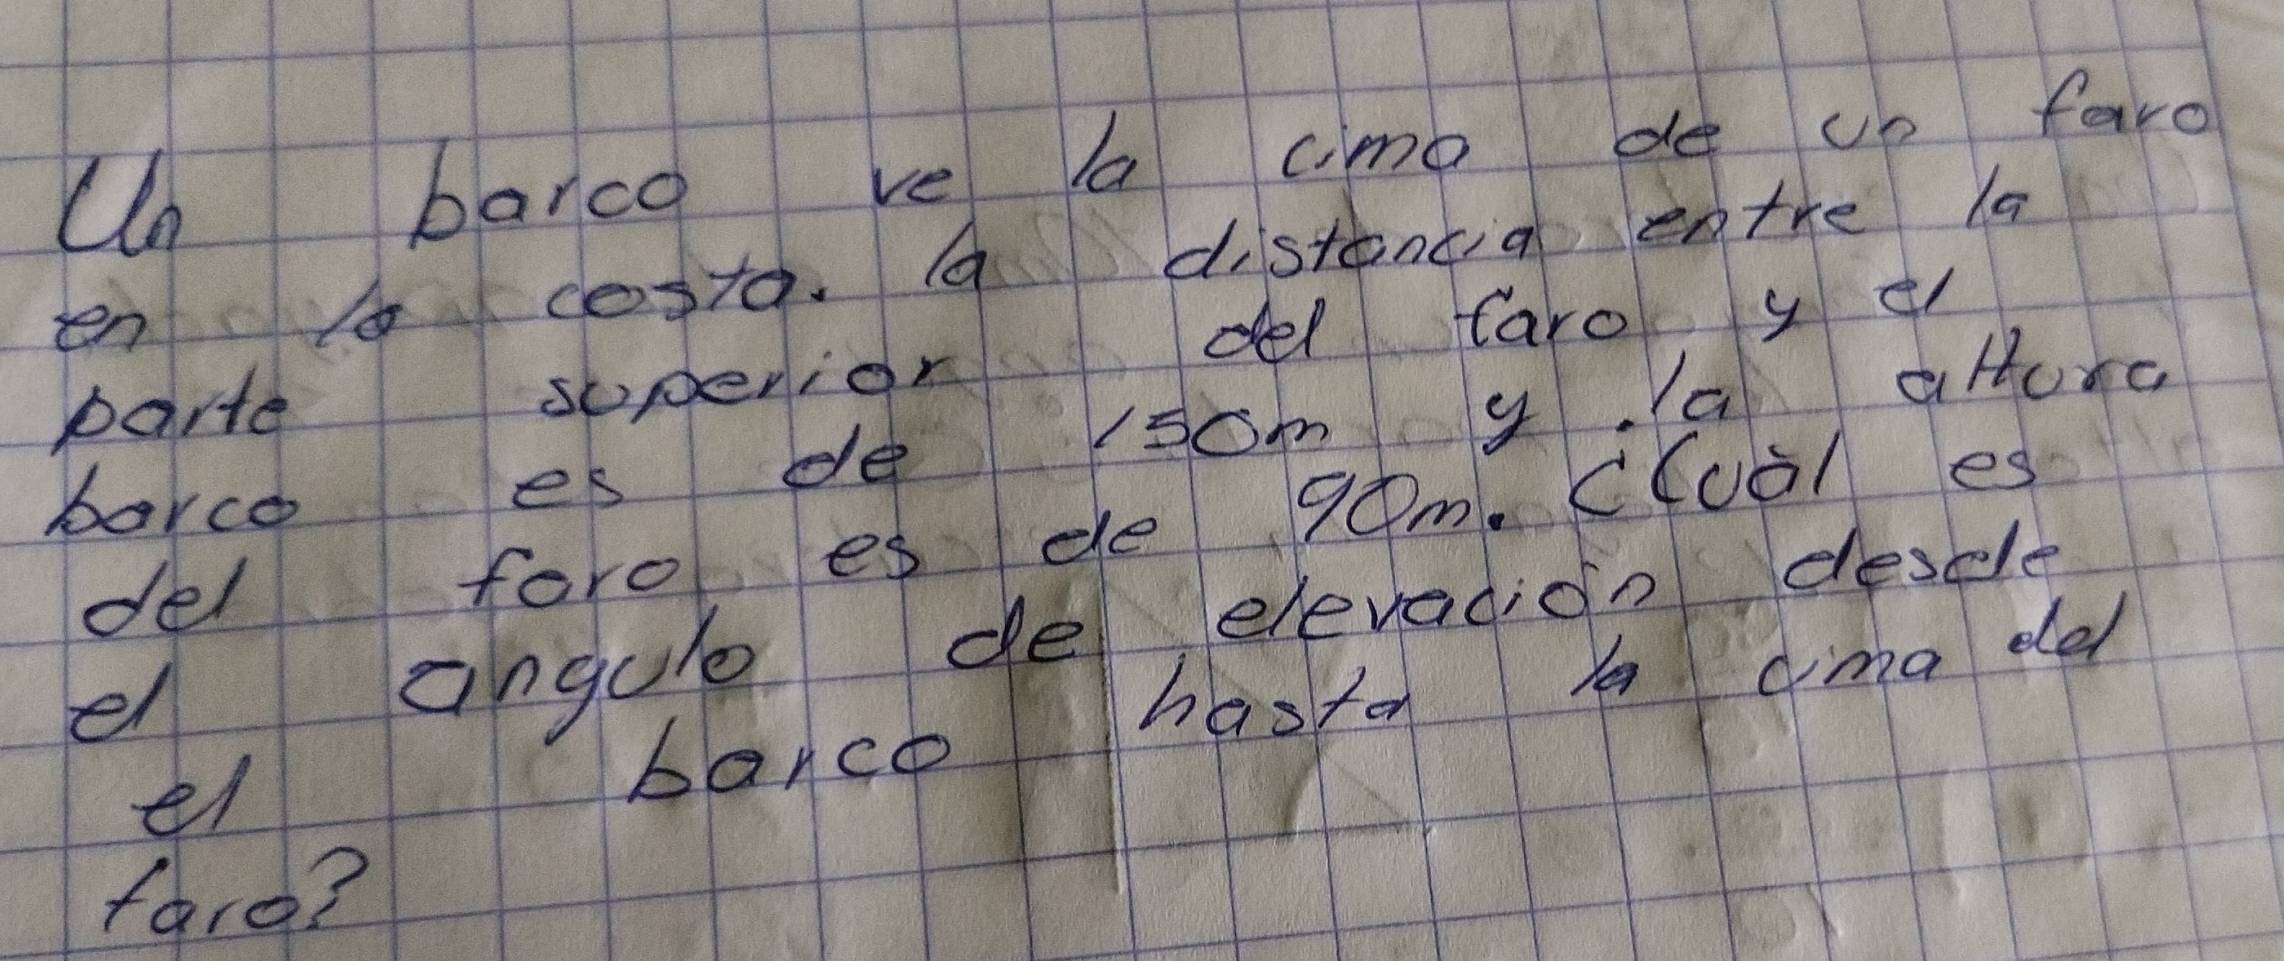 Un barco ve la cima de un faro
en la costa. la distancia entre la
parte superior del faro y el
barco es de 150m y la altura
del faro es de 90m. ¿Cuál es
el angulo de elevación desde
el barco hasta la cima del
faro?